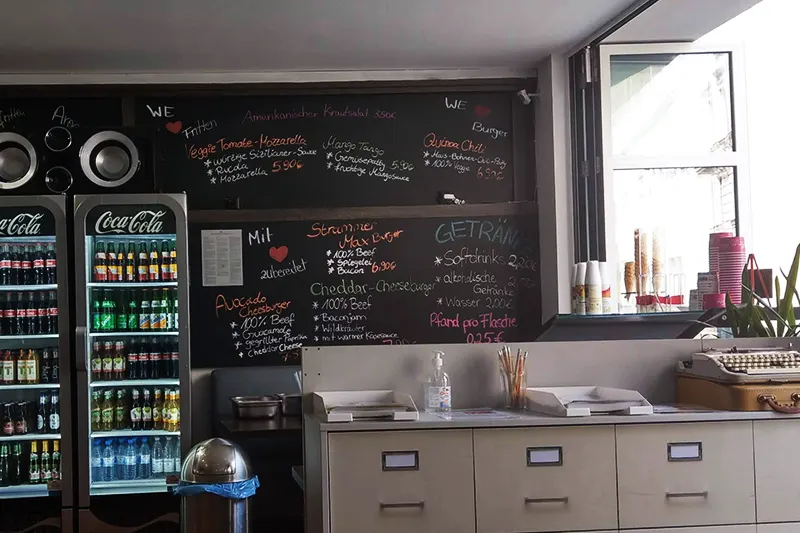 WE
Fritten
Amerikanischer Krautsalat 3,50€
WE
Burger
Veggie Tomate-Mozzarella
* würzige Sizilianer-Sauce
* Rucola
* Mozzarella 5,90€
Mango Tango
* Gemüsepatty 5,90
* fruchtige Mangosauce
Quinoa Chili
* 100% Veggie 6,90€
Mit
zubereitet
Strammer
Max Burger
* 100% Beef
* Spiegelei
* Bacon 6,90€
GETRÄN
* Softdrinks 2,20€
* alkoholische
Getränke
* Wasser 2,00€
Pfand pro Flasche
0,25€
Avocado
Cheeseburger
* 100% Beef
* Guacamole
* gegrillter Paprika
* Cheddar Cheese
Cheddar-Cheeseburger
* 100% Beef
* Baconjam
* Wildkräuter
* mit warmer Käsesauce
Coca-Cola
Coca-Cola